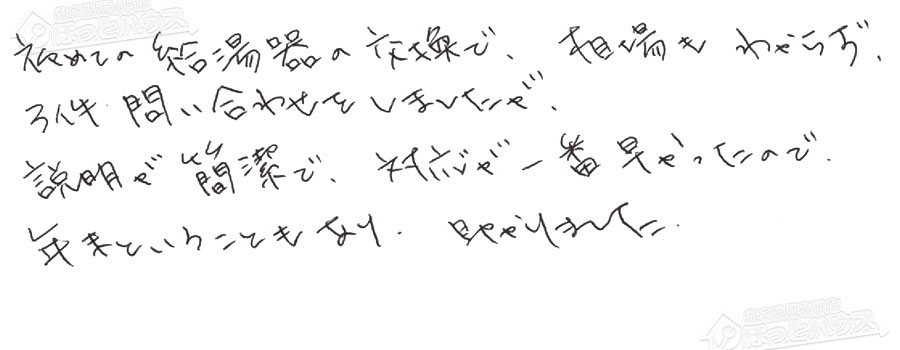 初めての給湯器の交換で、相場もわからず、
3件問い合わせをしましたが、
説明が簡潔で、対応が一番早かったので、
年末ということもあり、助かりました。
ほっとハウス
ほっとハウス